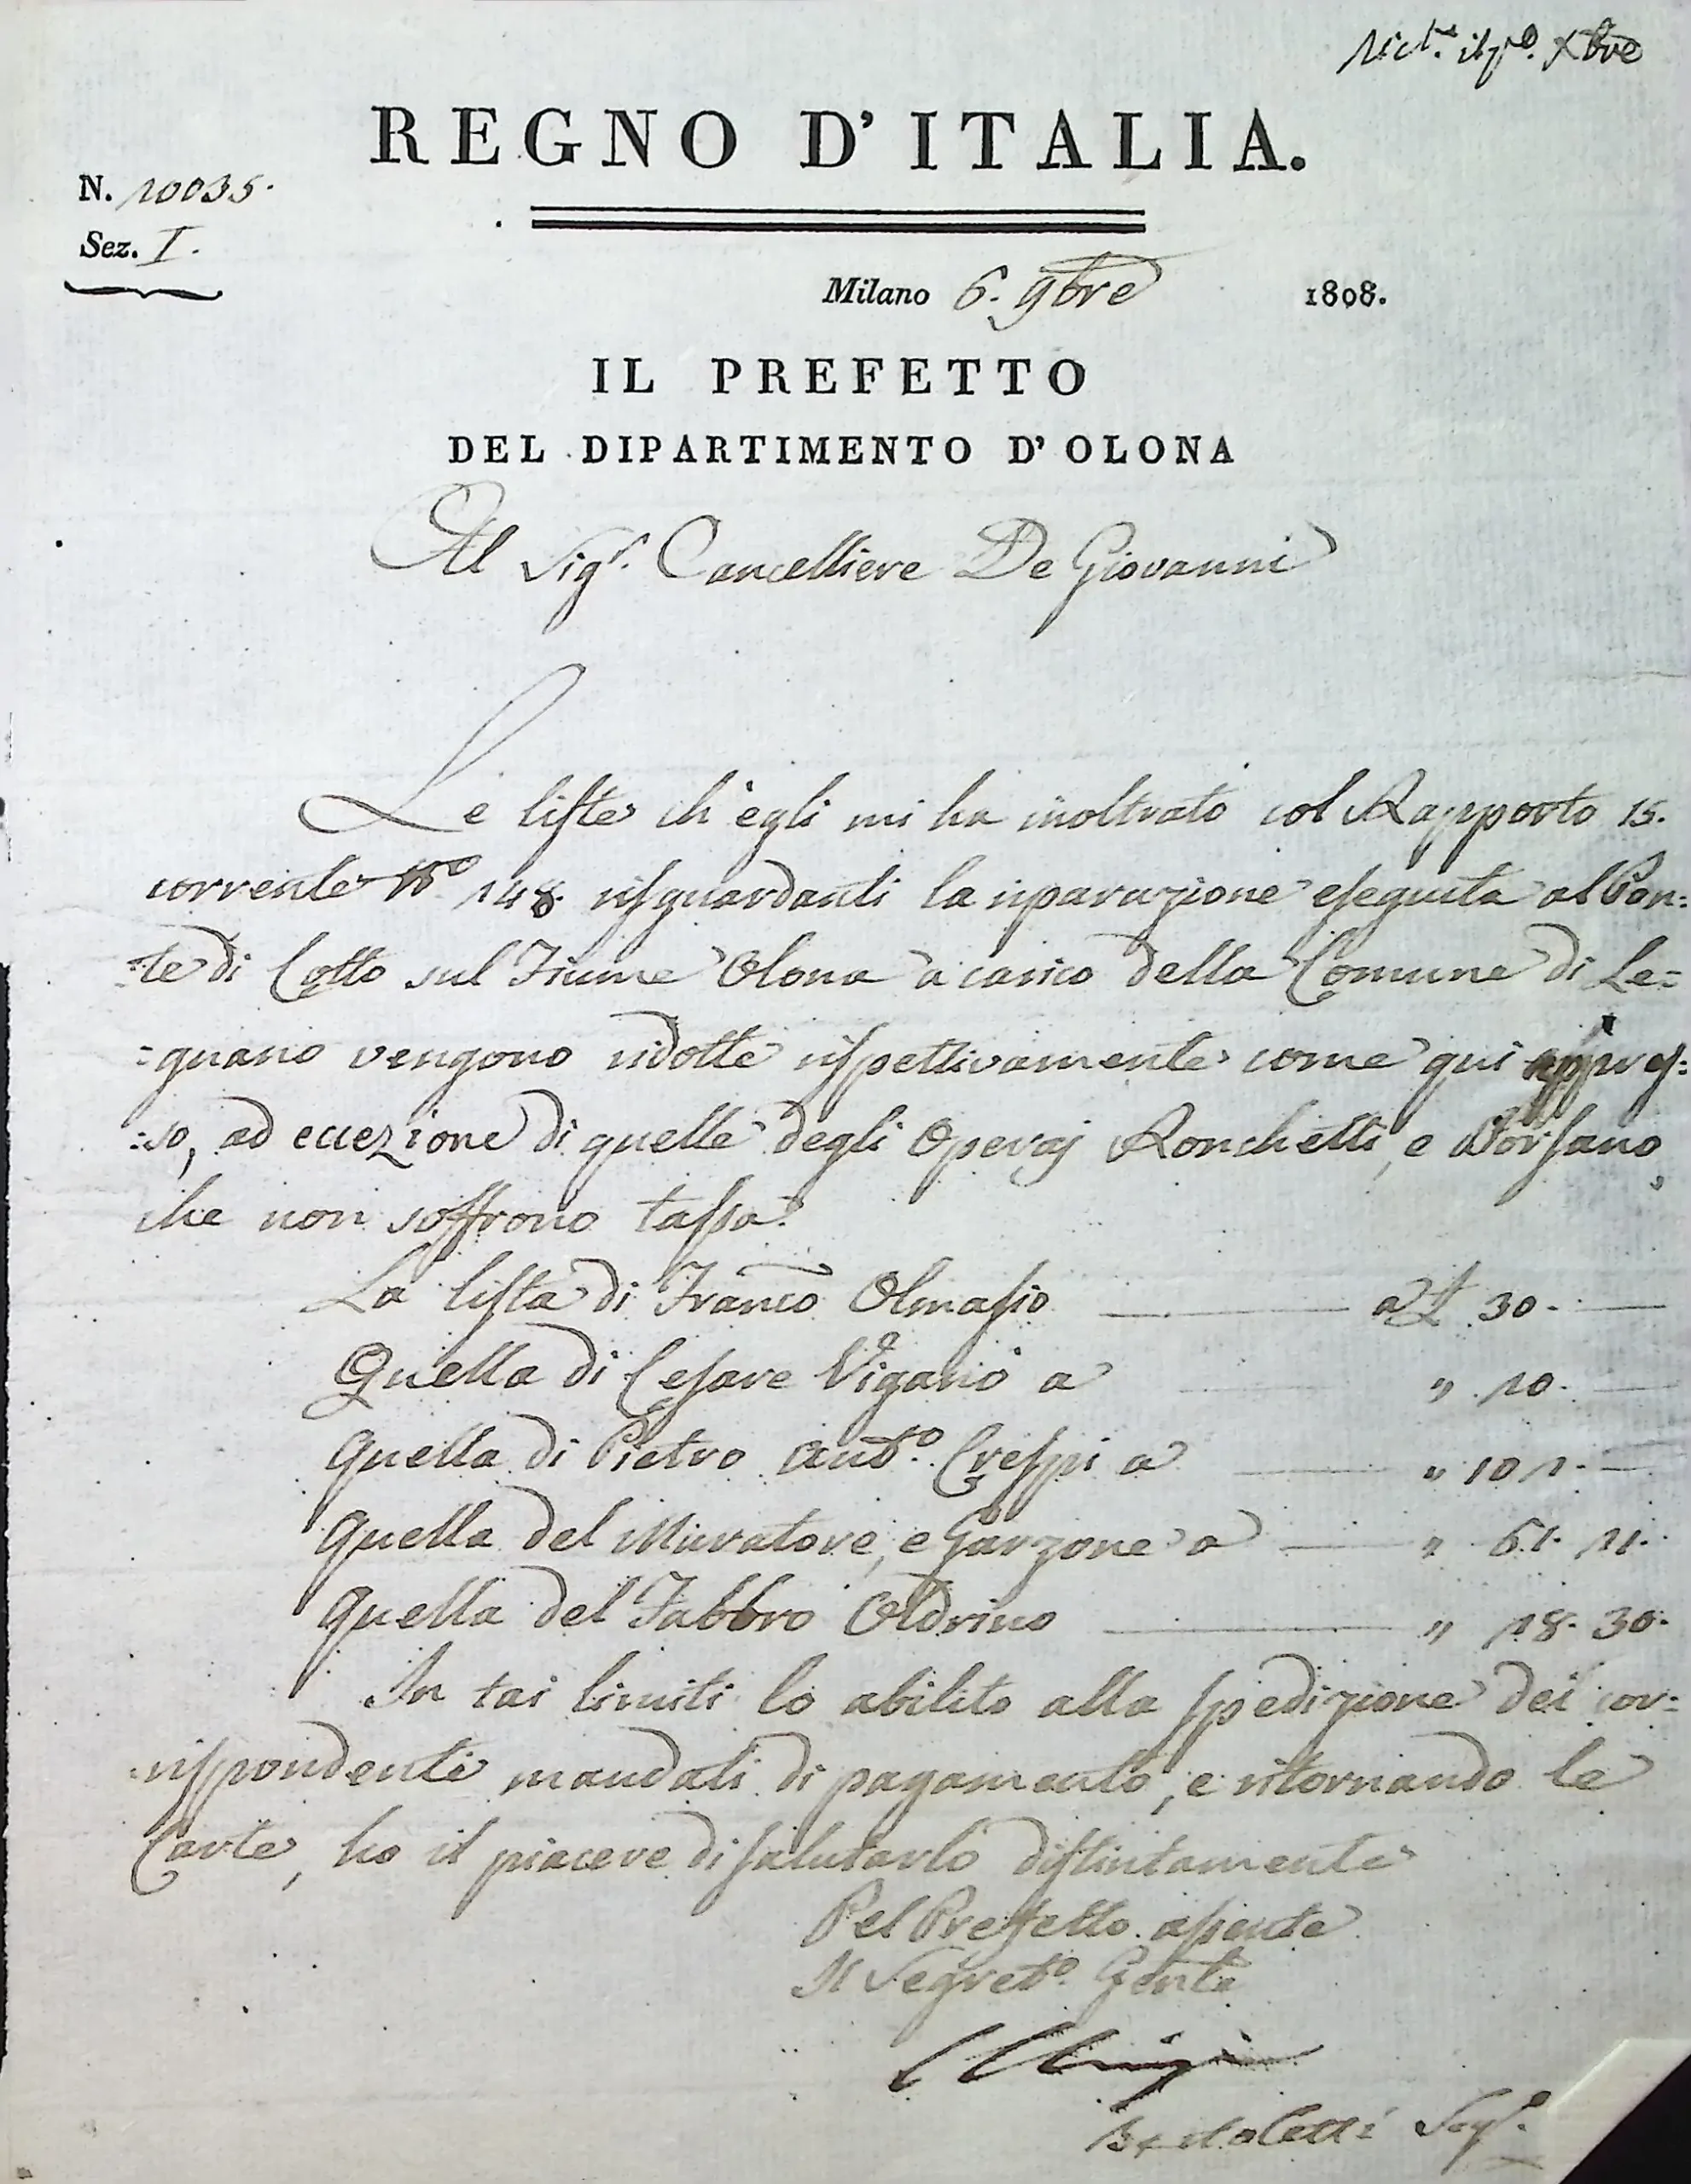 Ric.te il p.o Xbre
REGNO D'ITALIA.
N. 10035.
Sez. I.
Milano 6. 9bre 1808.
IL PREFETTO
DEL DIPARTIMENTO D'OLONA
Al Sig.r Cancelliere De Giovanni
Le liste ch'egli mi ha inoltrato col Rapporto 15.
corrente N.o 148. risguardanti la riparazione eseguita al Pon:
:te di Cotto sul Fiume Olona a carico della Comune di Le=
=gnano vengono ridotte rispettivamente come qui appres:
:so, ad eccezione di quelle degli Operaj Ronchetti, e Borsano,
che non soffrono tassa.
La lista di Franco Olmasio a £ 30.
Quella di Cesare Viganò a " 10.
Quella di Pietro Ant.o Crespi a " 101.
Quella del Muratore, e Garzone a " 61. 11.
Quella del Fabbro Oldrino " 18. 30.
In tai limiti lo abilito alla spedizione dei cor:
:rispondenti mandati di pagamento, e ritornando le
Carte, ho il piacere di salutarlo distintamente
Pel Prefetto assente
Il Segret.o Gen.le
Bertoletti Seg.o